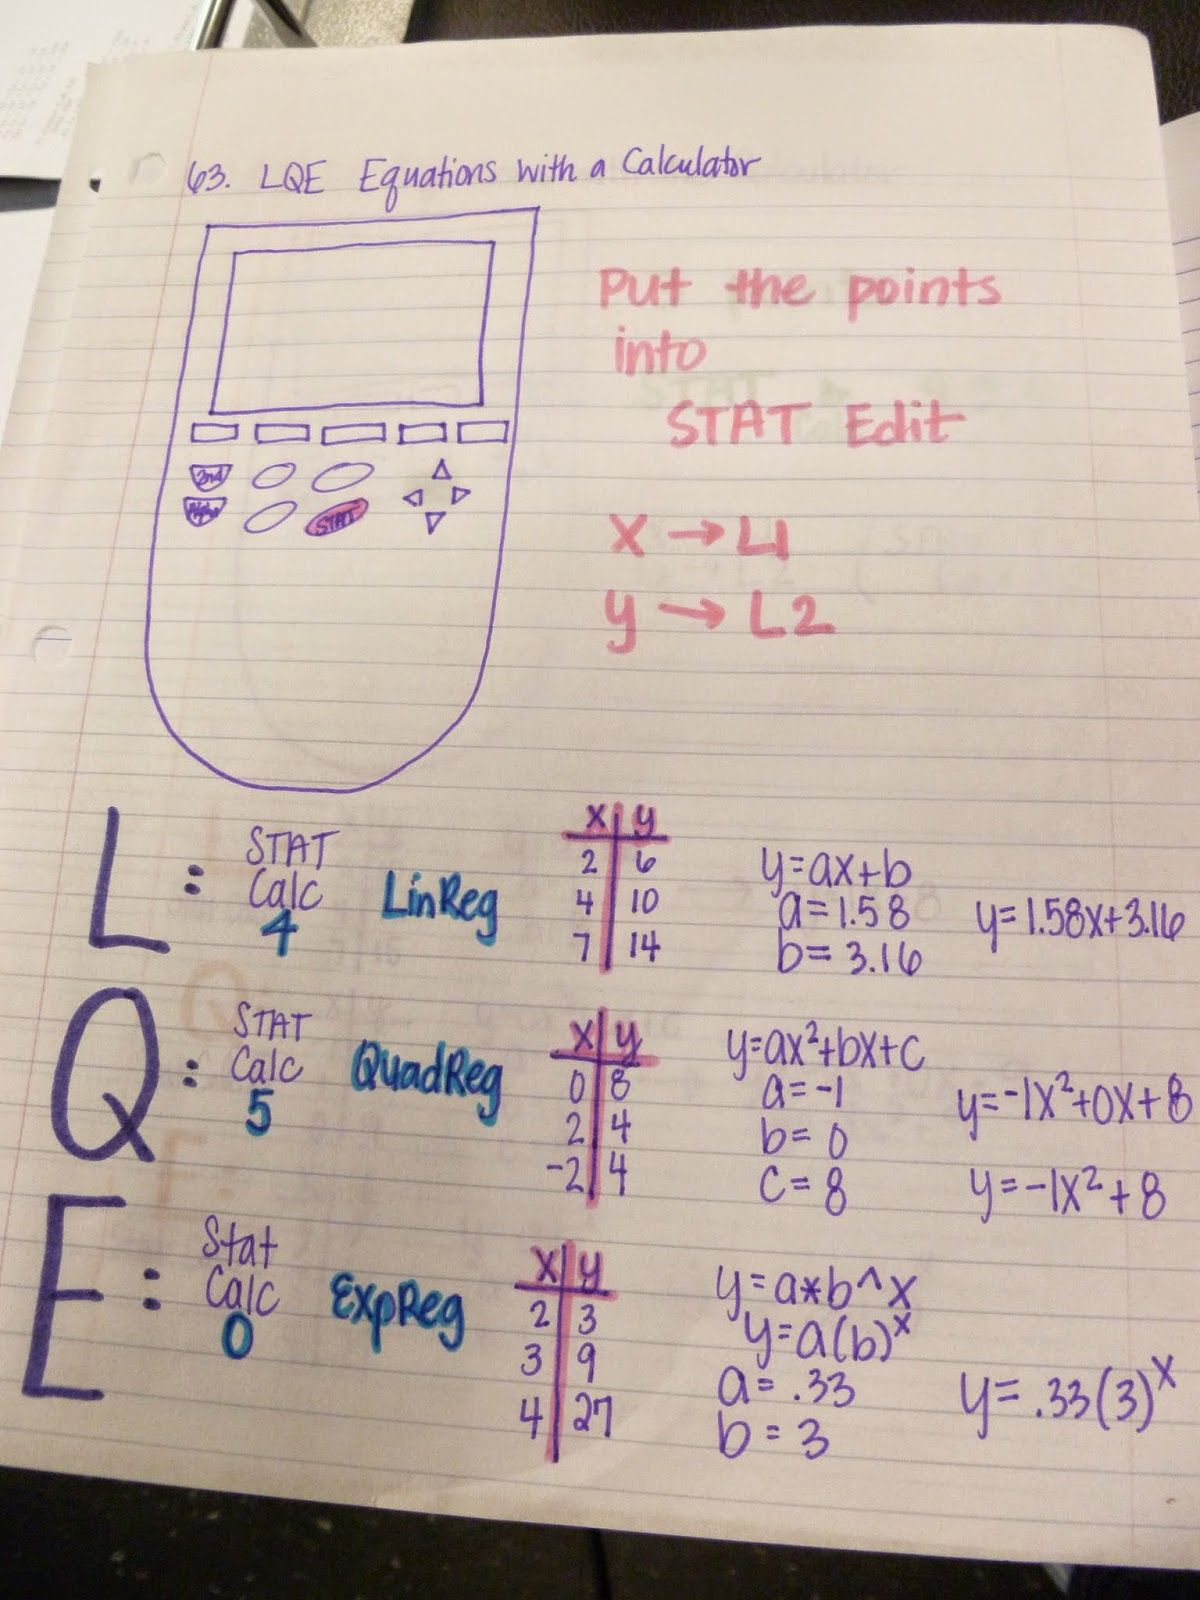 63. LQE Equations with a Calculator
Put the points
into
STAT Edit
x → L1
y → L2
2nd
Alpha
STAT
L : STAT Calc 4 LinReg
x y
2 6
4 10
7 14
y=ax+b
a=1.58
b= 3.16
y=1.58x+3.16
Q : STAT Calc 5 QuadReg
x y
0 8
2 4
-2 4
y=ax²+bx+c
a=-1
b= 0
c= 8
y=-1x²+0x+8
y=-1x²+8
E : Stat Calc 0 ExpReg
x y
2 3
3 9
4 27
y=a*b^x
y=a(b)ˣ
a= .33
b = 3
y= .33(3)ˣ